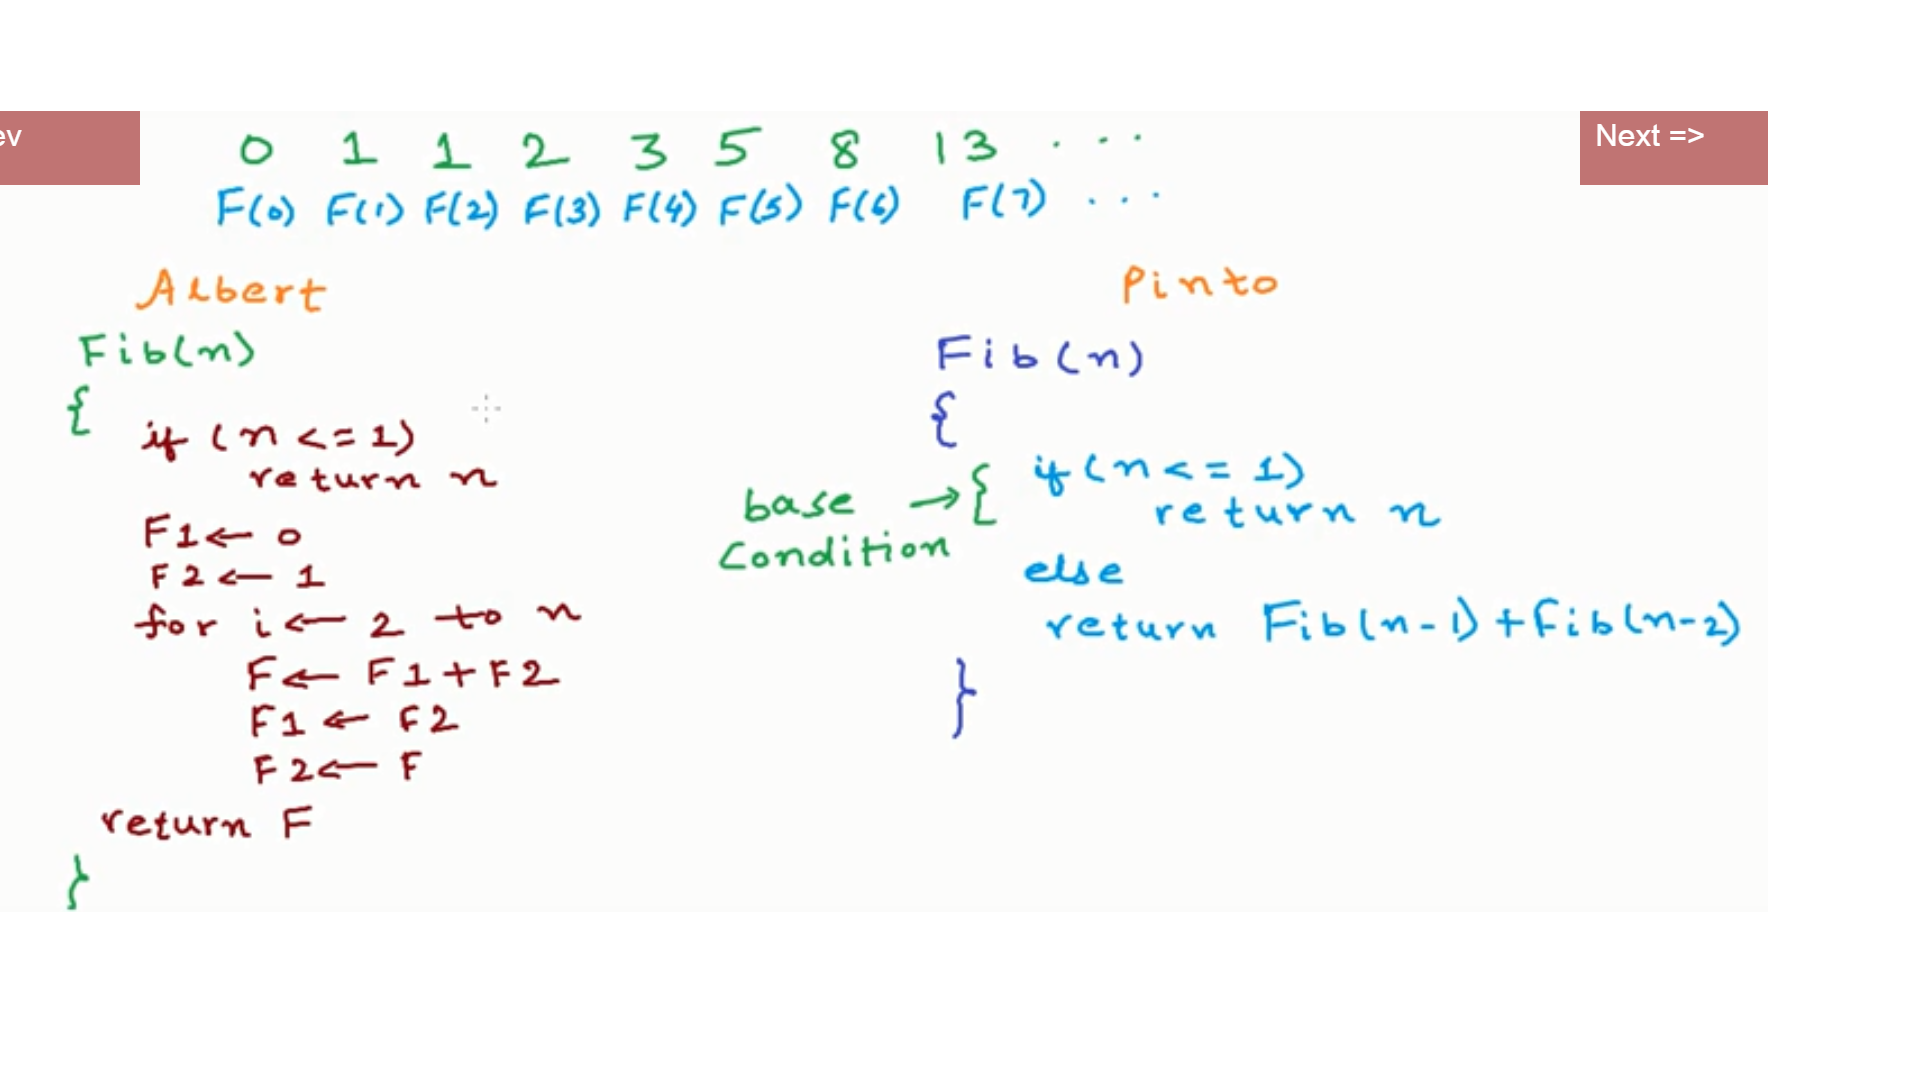 ev
Next =>
0 1 1 2 3 5 8 13 . . .
F(0) F(1) F(2) F(3) F(4) F(5) F(6) F(7) . . .
Albert
Fib(n)
{
if (n <= 1)
return n
F1 ← 0
F2 ← 1
for i ← 2 to n
F ← F1 + F2
F1 ← F2
F2 ← F
return F
}
Pinto
Fib(n)
{
base → {
condition
if (n <= 1)
return n
else
return Fib(n-1) + fib(n-2)
}